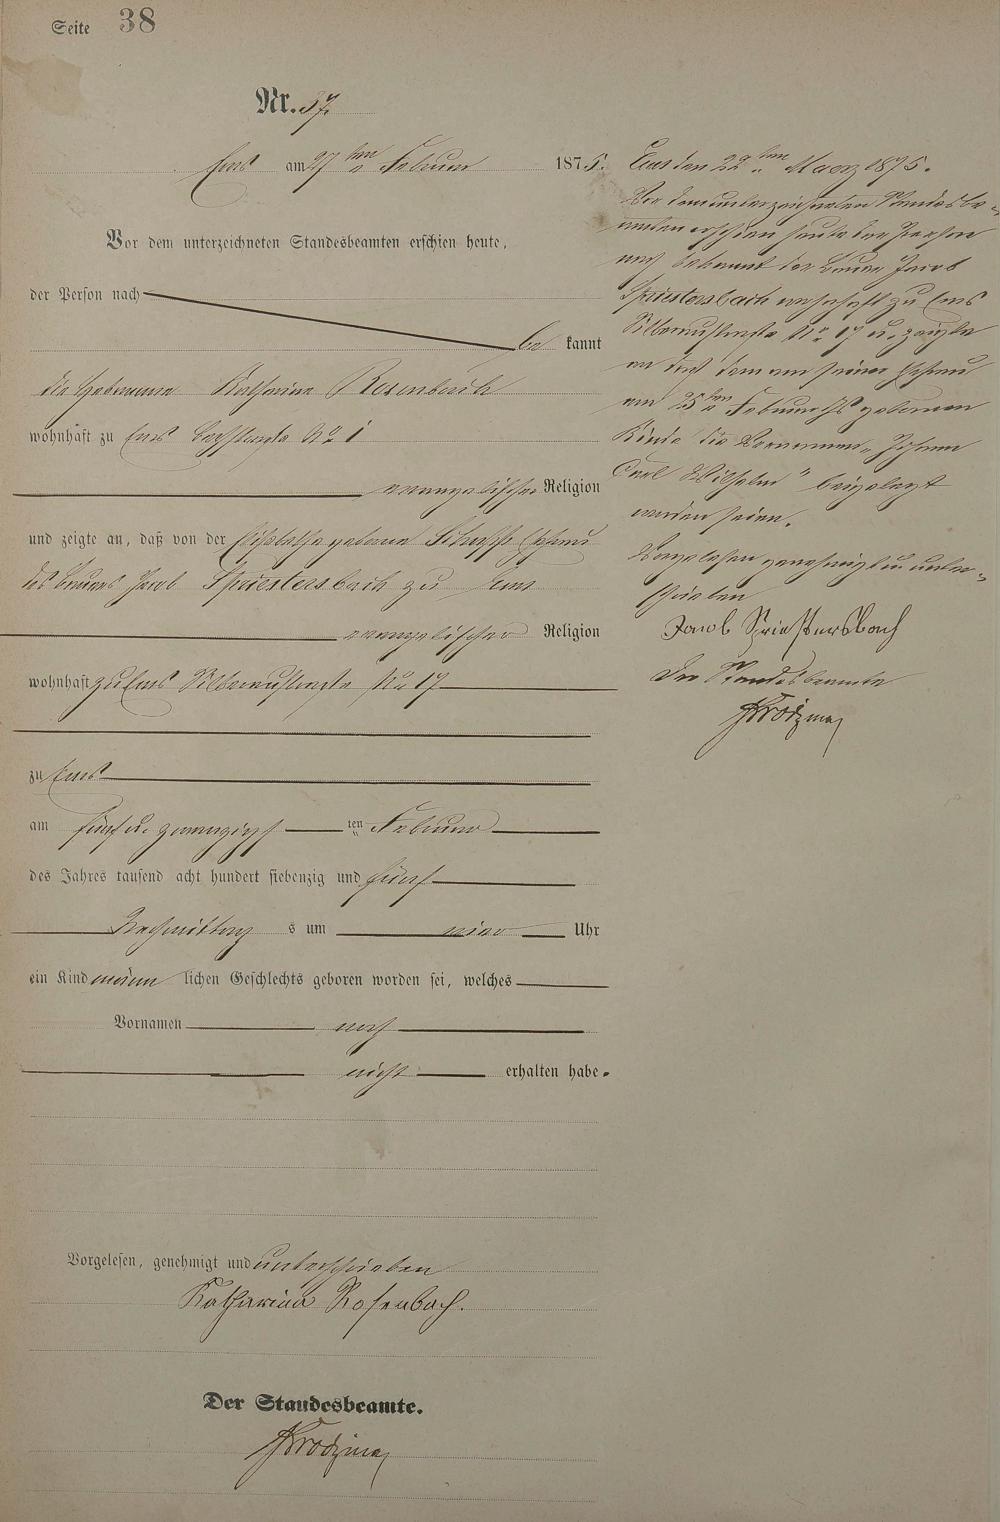 Seite 38
Nr. 37.
Ems am 27ten Februar 1875.
Vor dem unterzeichneten Standesbeamten erschien heute,
der Person nach
be kannt
die Hebamme Katharina Rosenbach
wohnhaft zu Ems No 1
evangelischer Religion
und zeigte an, daß von der Elisabetha geborene Ehefrau
des Jacob Spriestersbach zu Ems
evangelischer Religion
wohnhaft zu Ems Silberaustraße No 17
zu Ems
am fünf u. zwanzigst ten Februar
des Jahres tausend acht hundert siebenzig und fünf
Nachmittag s um vier Uhr
ein Kind männ lichen Geschlechts geboren worden sei, welches
Vornamen noch
nicht erhalten habe.
Vorgelesen, genehmigt und unterschrieben
Katharina Rosenbach.
Der Standesbeamte.
Ems den 22ten Maerz 1875.
Vor dem unterzeichneten Standesbe-
amten erschien heute der Person
nach bekannt der Jacob
Spriestersbach wohnhaft zu Ems
Silberaustraße No 17 u. zeigte
an daß dem von seiner Ehefrau
am 25ten Februar geborenen
Kinde die Vornamen „Johann
Carl Wilhelm" beigelegt
worden seien.
Vorgelesen genehmigt u. unter-
schrieben
Jacob Spriestersbach
Der Standesbeamte